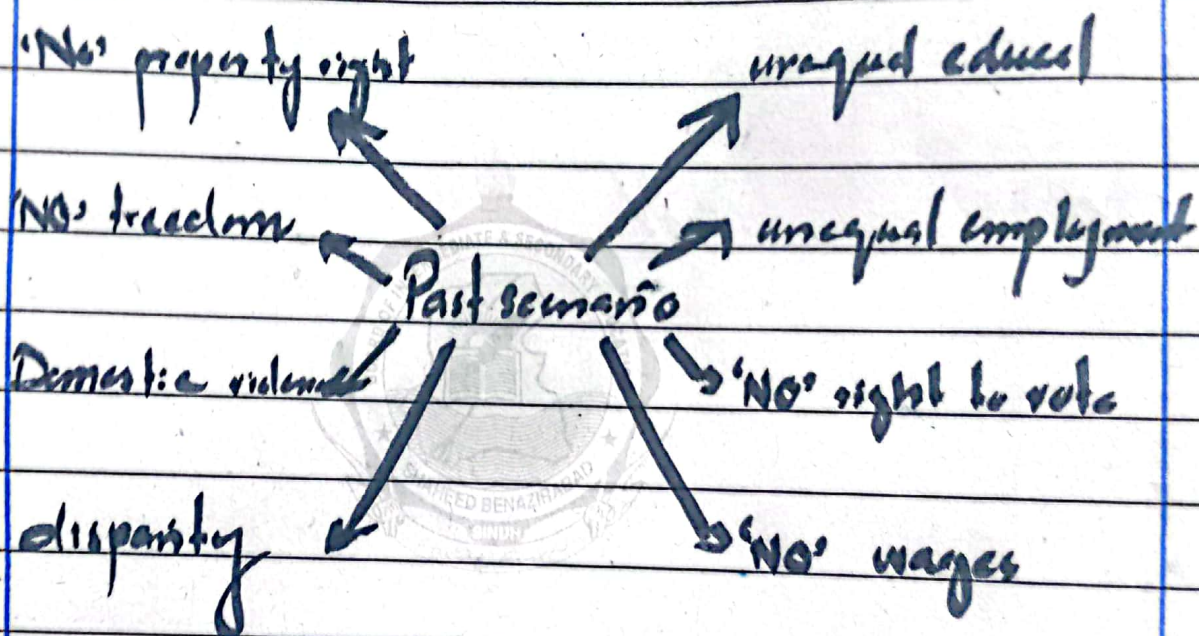 'No' property right
unequal educal
'NO' freedom
unequal employment
Past scenario
Domestic violence
'NO' right to vote
disparity
'NO' wages
SHAHEED BENAZIRABAD
SINDH